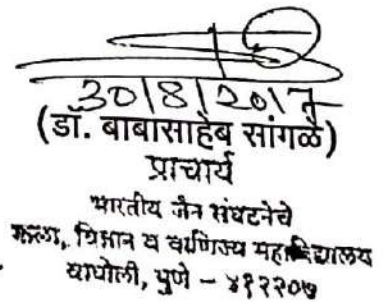 30/8/2017
(डॉ. बाबासाहेब सांगळे)
प्राचार्य
भारतीय जैन संघटनेचे
कला, विज्ञान व वाणिज्य महाविद्यालय
वाघोली, पुणे - ४१२२०७